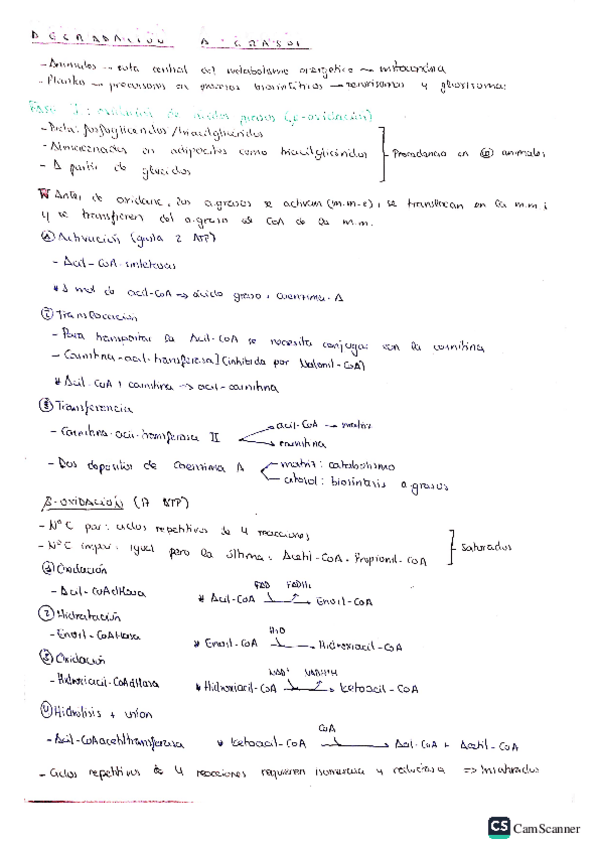 DEGRADACIÓN A. GRASOS
- Animales → ruta central del metabolismo energético → mitocondria
- Plantas → precursores en procesos biosintéticos → y glioxisomas
Fase I: oxidación de ácidos grasos (β-oxidación)
- Dieta: fosfoglicéridos / triacilglicéridos
- Almacenados en adipocitos como triacilglicéridos
Procedencia en animales
- A partir de glúcidos
Antes de oxidarse, los a.grasos se activan (m.m.e), se translocan en la m.m.i
y se transfieren del a.graso al CoA de la m.m.
① Activación (gasta 2 ATP)
- Acil-CoA sintetasas
* 1 mol de acil-CoA → ácido graso + coenzima-A
② Translocación
- Para transportar la Acil-CoA se necesita conjugar con la carnitina
- Carnitina-acil-transferasa I (inhibida por Malonil-CoA)
* Acil-CoA + carnitina → acil-carnitina
③ Transferencia
- Carnitina-acil-transferasa II
acil-CoA → matriz
carnitina
- Dos depósitos de coenzima A
matriz: catabolismo
citosol: biosíntesis a.grasos
β-OXIDACIÓN (17 ATP)
- Nº C par: ciclos repetitivos de 4 reacciones
- Nº C impar: igual pero la última: Acetil-CoA + Propionil-CoA
Saturados
① Oxidación
- Acil-CoAdHasa
* Acil-CoA FAD FADH₂ → Enoil-CoA
② Hidratación
- Enoil-CoAHasa
* Enoil-CoA H₂O → Hidroxiacil-CoA
③ Oxidación
- Hidroxiacil-CoAdHasa
* Hidroxiacil-CoA NAD⁺ NADH+H → Cetoacil-CoA
④ Hidrólisis + unión
- Acil-CoAacetiltransferasa
* Cetoacil-CoA CoA → Acil-CoA + Acetil-CoA
- Ciclos repetitivos de 4 reacciones requieren isomerasa y reductasa ⇒ Insaturados
CS CamScanner